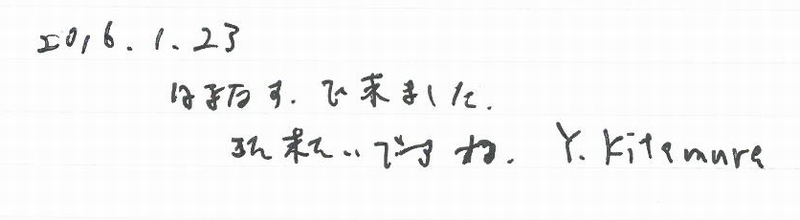 2016.1.23
はまなす.で来ました.
また来たいですね. Y. Kitamura